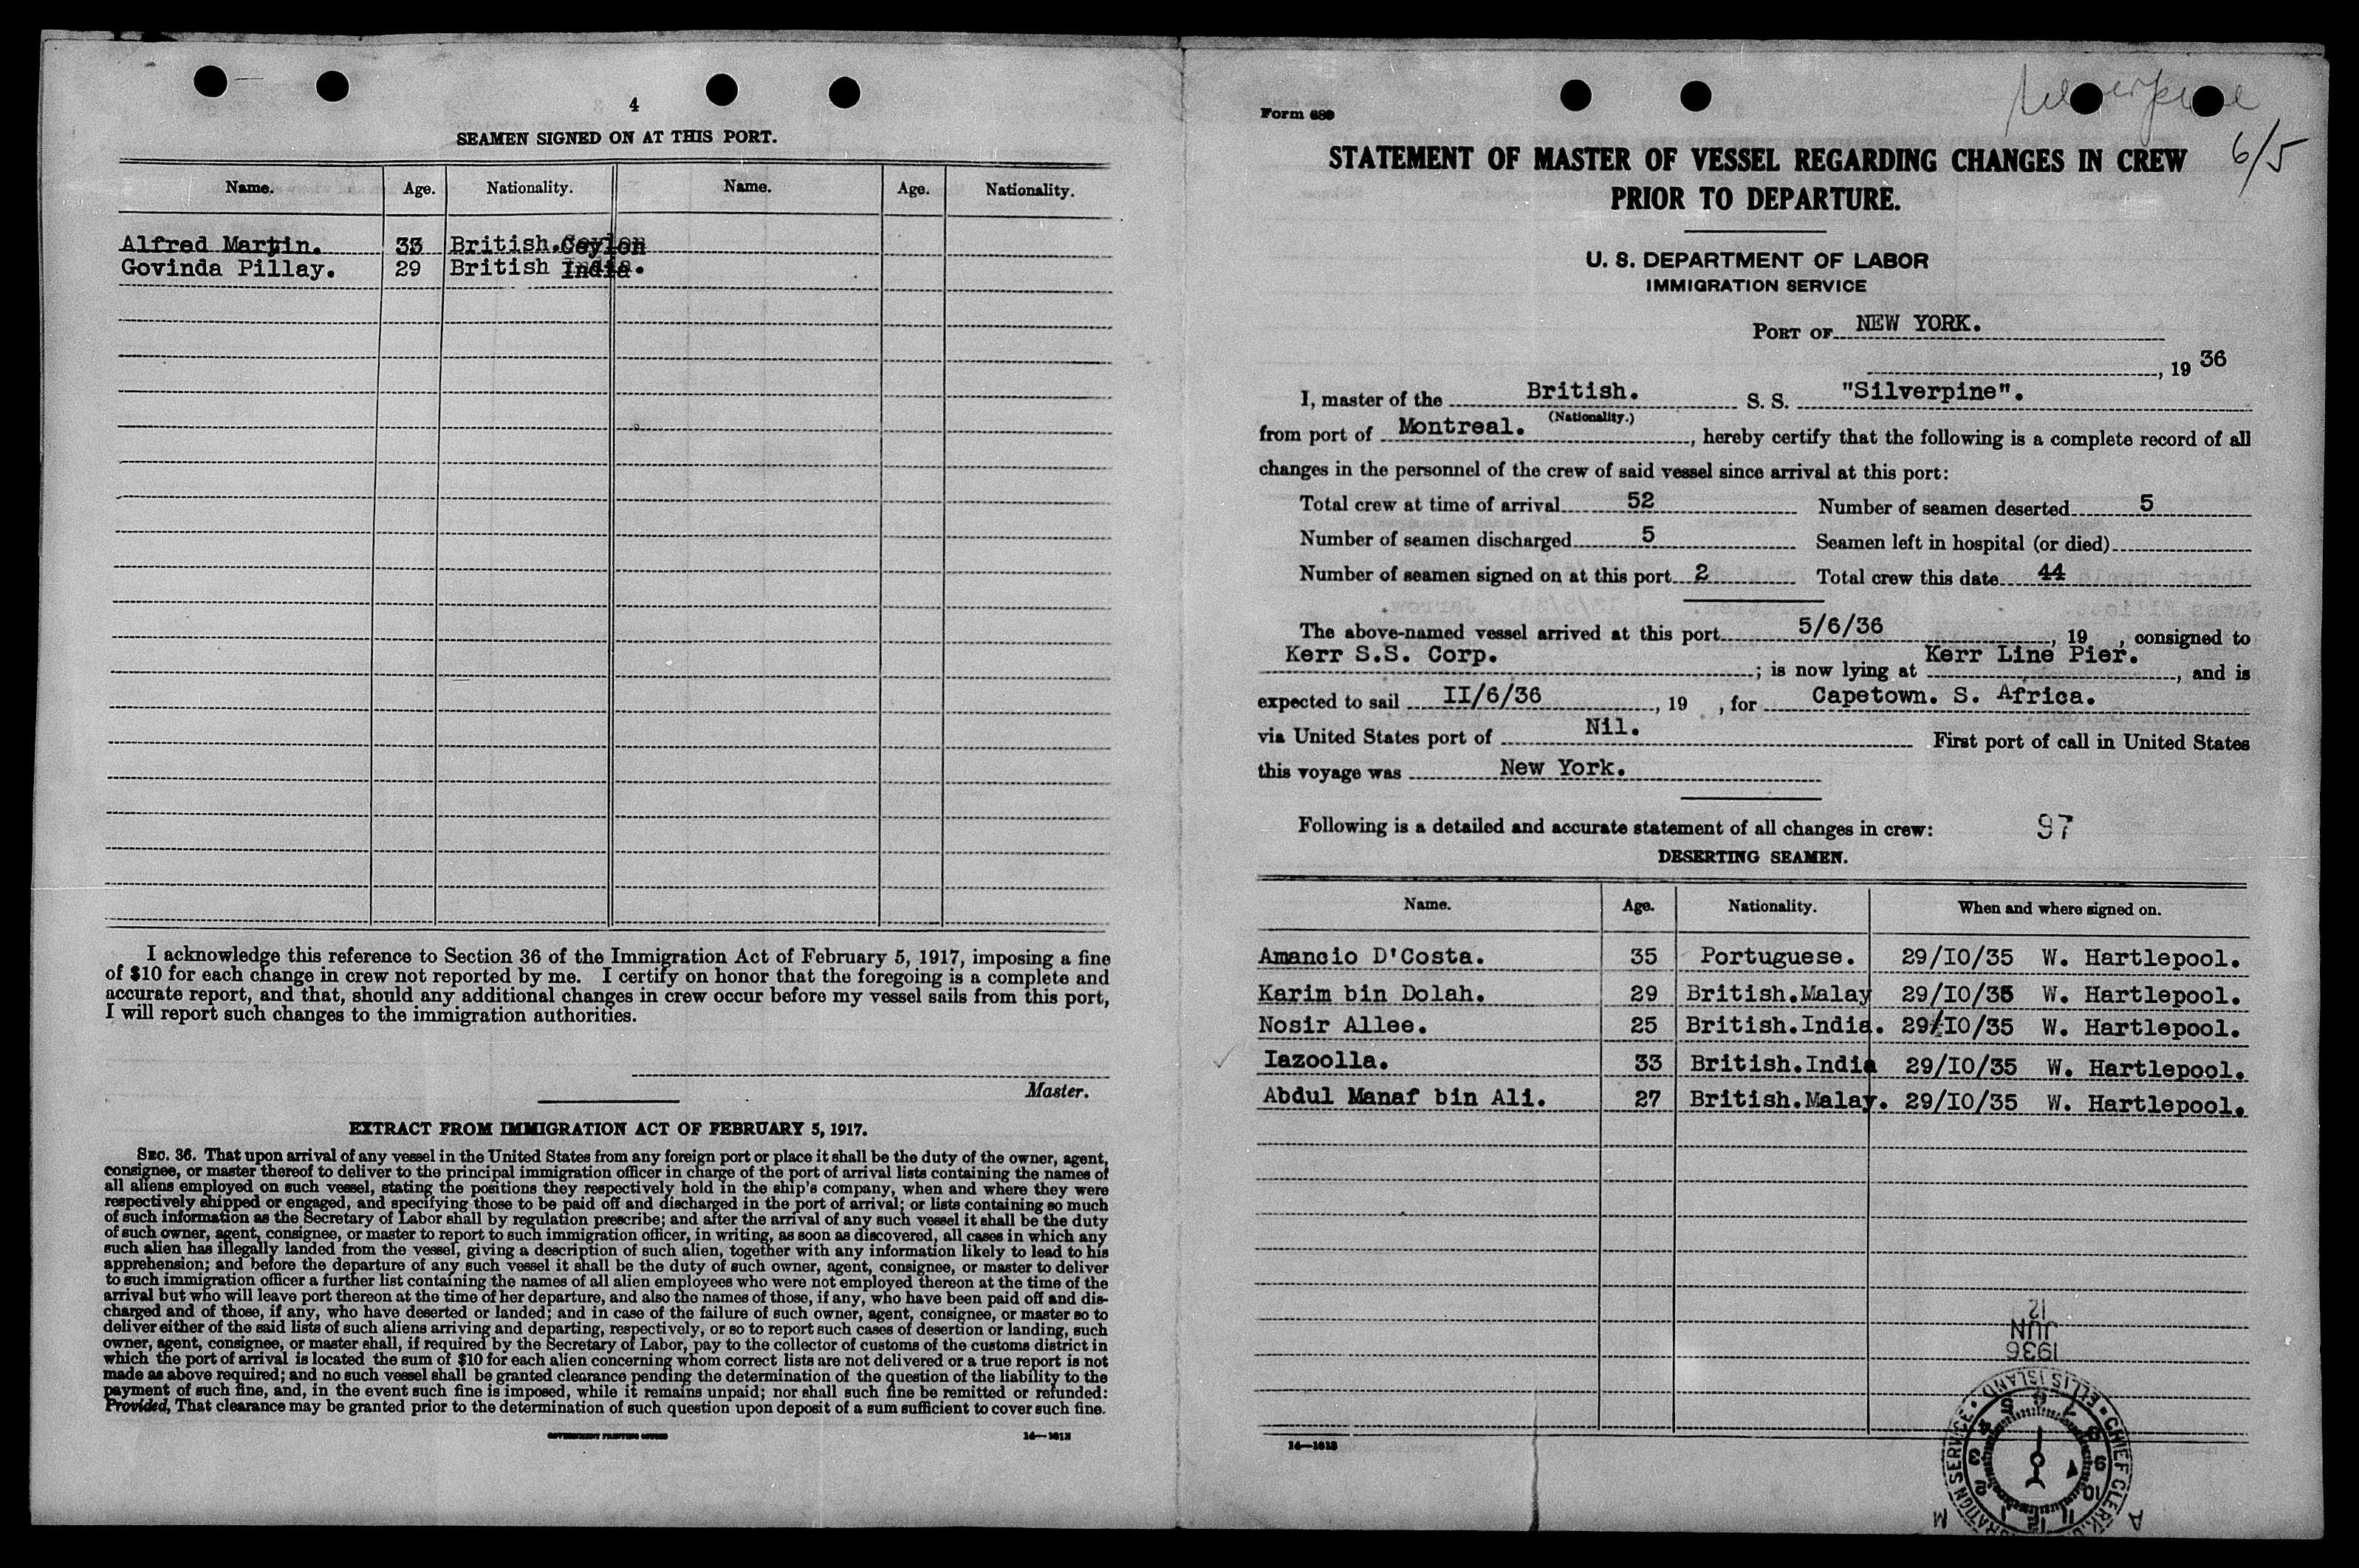 4
SEAMEN SIGNED ON AT THIS PORT.
Name. Age. Nationality. Name. Age. Nationality.
Alfred Martin. 33 British.Ceylon
Govinda Pillay. 29 British India.
I acknowledge this reference to Section 36 of the Immigration Act of February 5, 1917, imposing a fine
of $10 for each change in crew not reported by me. I certify on honor that the foregoing is a complete and
accurate report, and that, should any additional changes in crew occur before my vessel sails from this port,
I will report such changes to the immigration authorities.
Master.
EXTRACT FROM IMMIGRATION ACT OF FEBRUARY 5, 1917.
SEC. 36. That upon arrival of any vessel in the United States from any foreign port or place it shall be the duty of the owner, agent,
consignee, or master thereof to deliver to the principal immigration officer in charge of the port of arrival lists containing the names of
all aliens employed on such vessel, stating the positions they respectively hold in the ship's company, when and where they were
respectively shipped or engaged, and specifying those to be paid off and discharged in the port of arrival; or lists containing so much
of such information as the Secretary of Labor shall by regulation prescribe; and after the arrival of any such vessel it shall be the duty
of such owner, agent, consignee, or master to report to such immigration officer, in writing, as soon as discovered, all cases in which any
such alien has illegally landed from the vessel, giving a description of such alien, together with any information likely to lead to his
apprehension; and before the departure of any such vessel it shall be the duty of such owner, agent, consignee, or master to deliver
to such immigration officer a further list containing the names of all alien employees who were not employed thereon at the time of the
arrival but who will leave port thereon at the time of her departure, and also the names of those, if any, who have been paid off and dis-
charged and of those, if any, who have deserted or landed; and in case of the failure of such owner, agent, consignee, or master so to
deliver either of the said lists of such aliens arriving and departing, respectively, or so to report such cases of desertion or landing, such
owner, agent, consignee, or master shall, if required by the Secretary of Labor, pay to the collector of customs of the customs district in
which the port of arrival is located the sum of $10 for each alien concerning whom correct lists are not delivered or a true report is not
made as above required; and no such vessel shall be granted clearance pending the determination of the question of the liability to the
payment of such fine, and, in the event such fine is imposed, while it remains unpaid; nor shall such fine be remitted or refunded:
Provided, That clearance may be granted prior to the determination of such question upon deposit of a sum sufficient to cover such fine.
GOVERNMENT PRINTING OFFICE 14—1613
Silverpine
6/5
Form 689
STATEMENT OF MASTER OF VESSEL REGARDING CHANGES IN CREW
PRIOR TO DEPARTURE.
U. S. DEPARTMENT OF LABOR
IMMIGRATION SERVICE
PORT OF NEW YORK.
, 19 36
I, master of the British. S. S. "Silverpine".
(Nationality.)
from port of Montreal. , hereby certify that the following is a complete record of all
changes in the personnel of the crew of said vessel since arrival at this port:
Total crew at time of arrival 52 Number of seamen deserted 5
Number of seamen discharged 5 Seamen left in hospital (or died)
Number of seamen signed on at this port 2 Total crew this date 44
The above-named vessel arrived at this port 5/6/36 , 19 , consigned to
Kerr S.S. Corp. ; is now lying at Kerr Line Pier. , and is
expected to sail II/6/36 , 19 , for Capetown. S. Africa.
via United States port of Nil. First port of call in United States
this voyage was New York.
Following is a detailed and accurate statement of all changes in crew: 97
DESERTING SEAMEN.
Name. Age. Nationality. When and where signed on.
Amancio D'Costa. 35 Portuguese. 29/IO/35 W. Hartlepool.
Karim bin Dolah. 29 British.Malay 29/IO/35 W. Hartlepool.
Nosir Allee. 25 British.India. 29/IO/35 W. Hartlepool.
Iazoolla. 33 British.India 29/IO/35 W. Hartlepool.
Abdul Manaf bin Ali. 27 British.Malay. 29/IO/35 W. Hartlepool.
14—1613
12
JUN
1936
ELLIS ISLAND • CHIEF CLERK
A M